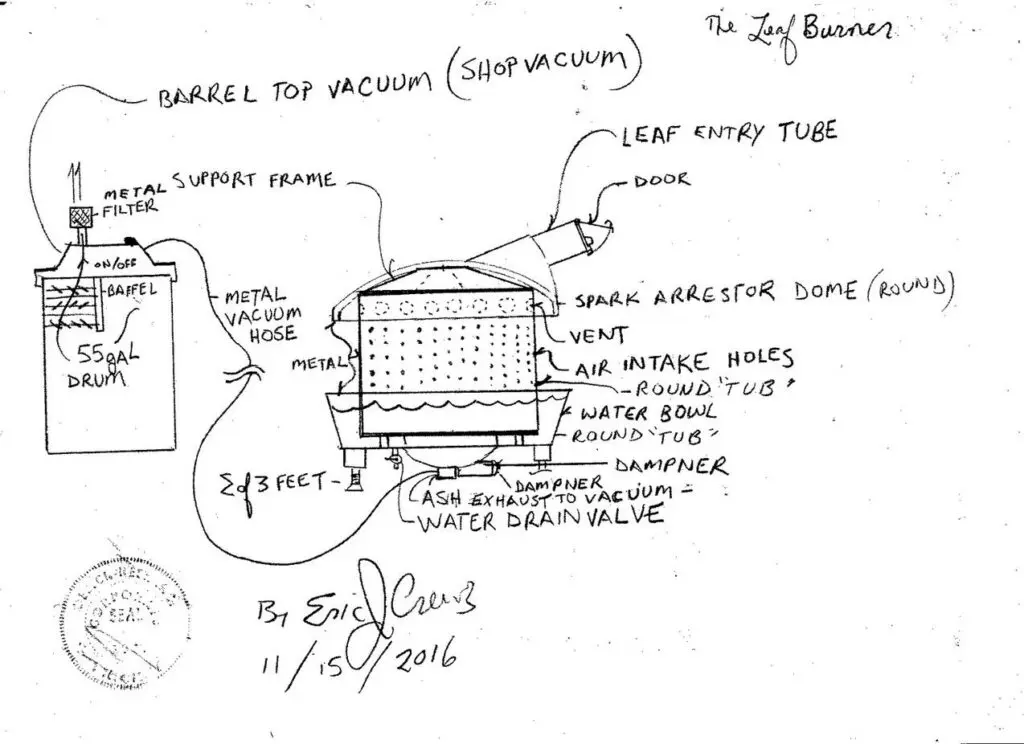 The Leaf Burner
BARREL TOP VACUUM (SHOPVACUUM)
LEAF ENTRY TUBE
DOOR
METAL
FILTER
SUPPORT FRAME
ON/OFF
BAFFEL
55gal
DRUM
METAL
VACUUM
HOSE
METAL
SPARK ARRESTOR DOME (ROUND)
VENT
AIR INTAKE HOLES
ROUND "TUB"
WATER BOWL
ROUND "TUB"
DAMPNER
DAMPNER
2 of 3 FEET
ASH EXHAUST TO VACUUM
WATER DRAIN VALVE
CORPORATE
SEAL
By Eric J Crews
11/15/2016